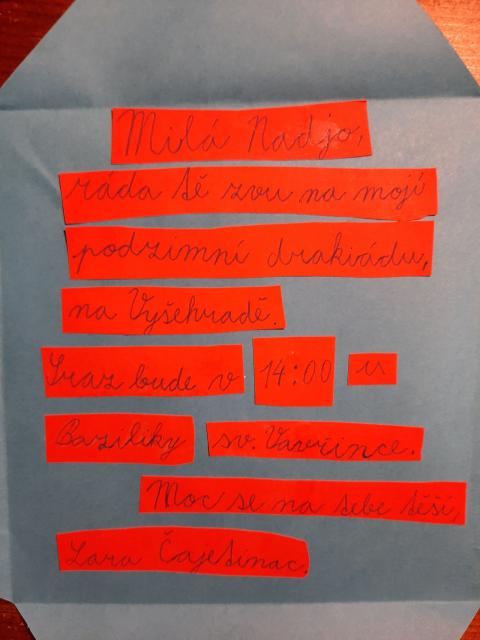 Milá Nadjo,
ráda tě zvu na moji
podzimní drakiádu,
na Vyšehradě.
Sraz bude v 14:00 u
Baziliky sv. Vavřince.
Moc se na tebe těší,
Lara Čajetinac.